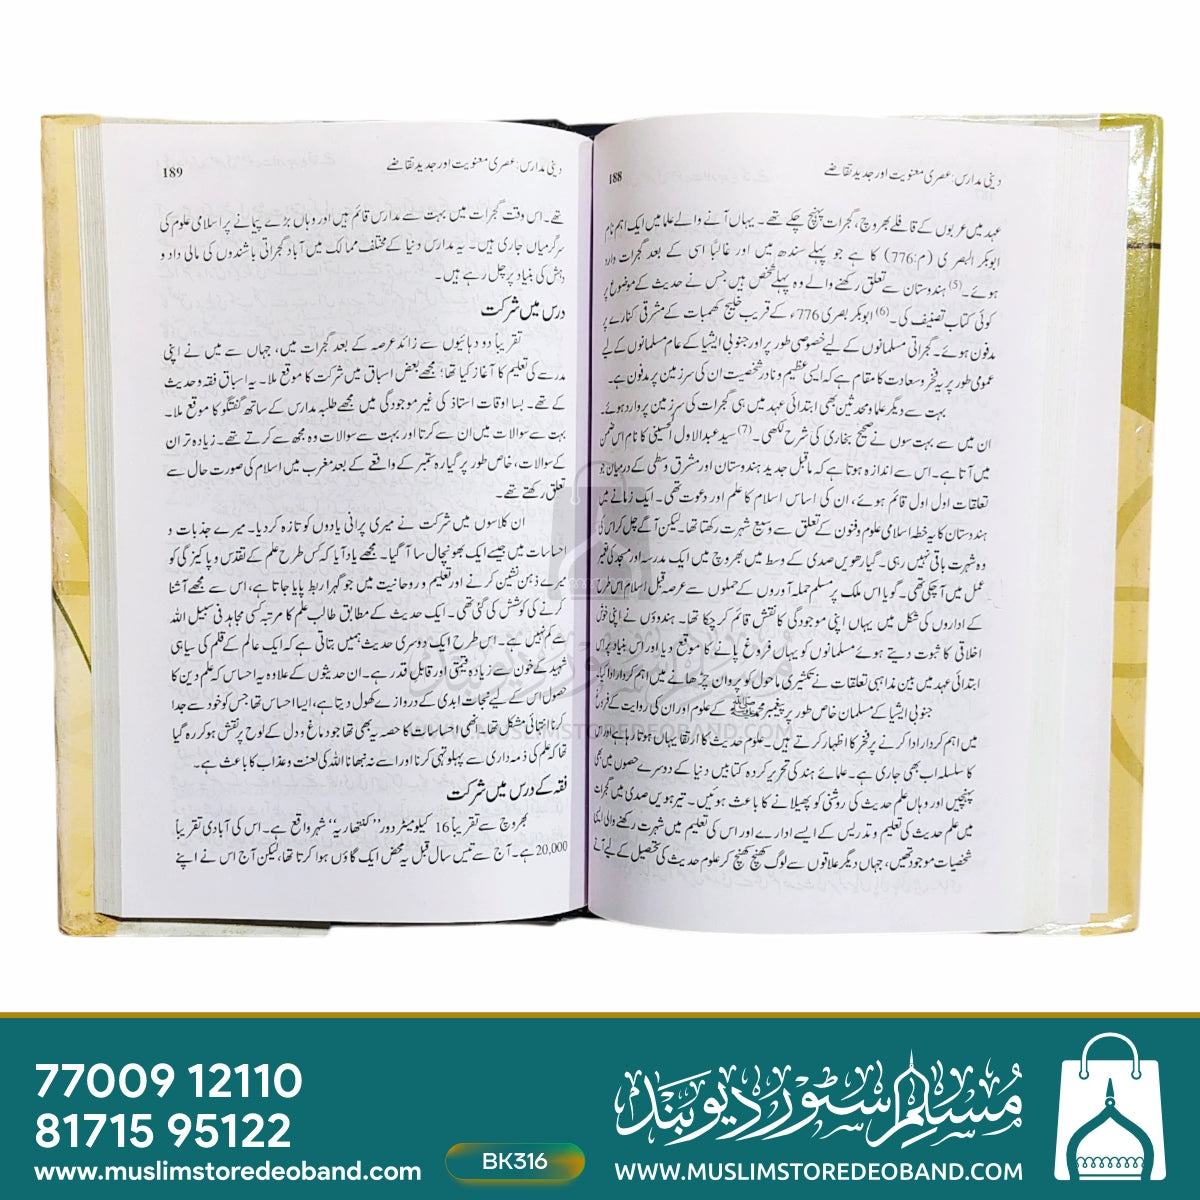 دینی مدارس: عصری معنویت اور جدید تقاضے
188
عہد میں عربوں کے قافلے بھروچ، گجرات پہنچ چکے تھے۔ یہاں آنے والے علما میں ایک اہم نام
ابوبکر البصری (م:776) کا ہے جو پہلے سندھ میں اور غالباً اسی کے بعد گجرات وارد
ہوئے۔(5) ہندوستان سے تعلق رکھنے والے وہ پہلے شخص ہیں جس نے حدیث کے موضوع پر
کوئی کتاب تصنیف کی۔(6) ابوبکر بصری 776ء کے قریب خلیج کھمبات کے مشرقی کنارے پر
مدفون ہوئے۔ گجراتی مسلمانوں کے لیے خصوصی طور پر اور جنوبی ایشیا کے عام مسلمانوں کے لیے
عمومی طور پر یہ فخر و سعادت کا مقام ہے کہ ایسی عظیم و نادر شخصیت ان کی سرزمین پر مدفون ہے۔
بہت سے دیگر علما و محدثین بھی ابتدائی عہد میں ہی گجرات کی سرزمین پر وارد ہوئے۔
ان میں سے بہت سوں نے صحیح بخاری کی شرح لکھی۔(7) سید عبدالاول الحسینی کا نام اس ضمن
میں آتا ہے۔ اس سے اندازہ ہوتا ہے کہ ماقبل جدید ہندوستان اور مشرق وسطی کے درمیان جو
تعلقات اول اول قائم ہوئے، ان کی اساس اسلام کا علم اور دعوت تھی۔ ایک زمانے میں
ہندوستان کا یہ خطہ اسلامی علوم و فنون کے تعلق سے وسیع شہرت رکھتا تھا۔ لیکن آگے چل کر اس کی
وہ شہرت باقی نہیں رہی۔ گیارھویں صدی کے وسط میں بھروچ میں ایک مدرسہ اور مسجد کی تعمیر
عمل میں آچکی تھی۔ گویا اس ملک پر مسلم حملہ آوروں کے حملوں سے عرصہ قبل اسلام اس طرح
کے اداروں کی شکل میں یہاں اپنی موجودگی کا نقش قائم کر چکا تھا۔ ہندوؤں نے اپنی خوش
اخلاقی کا ثبوت دیتے ہوئے مسلمانوں کو یہاں فروغ پانے کا موقع دیا اور اس بنیاد پر اس
ابتدائی عہد میں بین مذاہبی تعلقات نے تکثیری ماحول کو پروان چڑھانے میں اہم کردار ادا کیا۔
جنوبی ایشیا کے مسلمان خاص طور پر پیغمبر محمد ﷺ کے علوم اور ان کی روایت کے فروغ
میں اہم کردار ادا کرنے پر فخر کا اظہار کرتے ہیں۔ علوم حدیث کا ارتقا یہاں ہوتا رہا ہے اور اس
کا سلسلہ اب بھی جاری ہے۔ علمائے ہند کی تحریر کردہ کتابیں دنیا کے دوسرے حصوں میں بھی
پہنچیں اور وہاں علم حدیث کی روشنی کو پھیلانے کا باعث ہوئیں۔ تیرہویں صدی میں گجرات
میں علم حدیث کی تعلیم و تدریس کے ایسے ادارے اور اس کی تعلیم میں شہرت رکھنے والی ایسی
شخصیات موجود تھیں، جہاں دیگر علاقوں سے لوگ کھنچ کھنچ کر علوم حدیث کی تحصیل کے لیے آتے
دینی مدارس: عصری معنویت اور جدید تقاضے
189
تھے۔ اس وقت گجرات میں بہت سے مدارس قائم ہیں اور وہاں بڑے پیمانے پر اسلامی علوم کی
سرگرمیاں جاری ہیں۔ یہ مدارس دنیا کے مختلف ممالک میں آباد گجراتی باشندوں کی مالی داد و
دہش کی بنیاد پر چل رہے ہیں۔
درس میں شرکت
تقریباً دو دہائیوں سے زائد عرصہ کے بعد گجرات میں، جہاں سے میں نے اپنی
مدرسے کی تعلیم کا آغاز کیا تھا؛ مجھے بعض اسباق میں شرکت کا موقع ملا۔ یہ اسباق فقہ و حدیث
کے تھے۔ بسا اوقات استاذ کی غیر موجودگی میں مجھے طلبہ مدارس کے ساتھ گفتگو کا موقع ملا۔
بہت سے سوالات میں ان سے کرتا اور بہت سے سوالات وہ مجھ سے کرتے تھے۔ زیادہ تر ان
کے سوالات، خاص طور پر گیارہ ستمبر کے واقعے کے بعد مغرب میں اسلام کی صورت حال سے
تعلق رکھتے تھے۔
ان کلاسوں میں شرکت نے میری پرانی یادوں کو تازہ کر دیا۔ میرے جذبات و
احساسات میں جیسے ایک بھونچال سا آگیا۔ مجھے یاد آیا کہ کس طرح علم کے تقدس و پاکیزگی کو
میرے ذہن نشین کرنے اور تعلیم و روحانیت میں جو گہرا ربط پایا جاتا ہے، اس سے مجھے آشنا
کرنے کی کوشش کی گئی تھی۔ ایک حدیث کے مطابق طالب علم کا مرتبہ کسی مجاہد فی سبیل اللہ
سے کم نہیں ہے۔ اس طرح ایک دوسری حدیث ہمیں بتاتی ہے کہ ایک عالم کے قلم کی سیاہی
شہید کے خون سے زیادہ قیمتی اور قابل قدر ہے۔ ان حدیثوں کے علاوہ یہ احساس کہ علم دین کا
حصول اس کے لیے نجات ابدی کے دروازے کھول دیتا ہے، ایسا احساس تھا جس کو خود سے جدا
کرنا انتہائی مشکل تھا۔ انھی احساسات کا حصہ یہ بھی تھا جو دماغ و دل کے لوح پر نقش ہو کر رہ گیا
تھا کہ علم کی ذمہ داری سے پہلو تہی کرنا اور اسے نہ نبھانا اللہ کی لعنت و عذاب کا باعث ہے۔
فقہ کے درس میں شرکت
بھروچ سے تقریباً 16 کیلومیٹر دور "کنتھاریہ" شہر واقع ہے۔ اس کی آبادی تقریباً
20,000 ہے۔ آج سے تیس سال قبل یہ محض ایک گاؤں ہوا کرتا تھا، لیکن آج اس نے اپنے
مسلم سٹور دیوبند
WWW.MUSLIMSTOREDEOBAND.COM
77009 12110
81715 95122
www.muslimstoredeoband.com
BK316
مسلم سٹور دیوبند
WWW.MUSLIMSTOREDEOBAND.COM